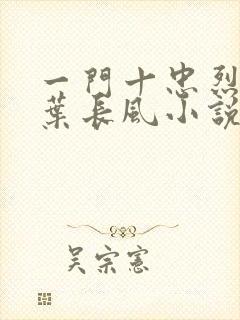 一門十忠烈
葉長風小說
吳宗憲